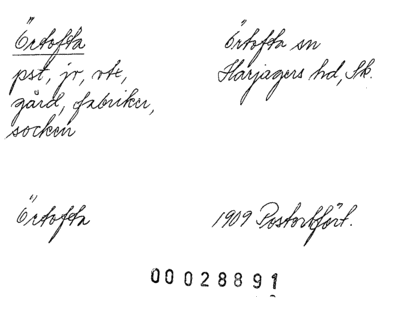 Örtofta
pst, jr, vte,
gård, fabriker,
socken
Örtofta sn
Harjagers hd, Sk.
Örtofta
1909 Postortsfört.
00028891